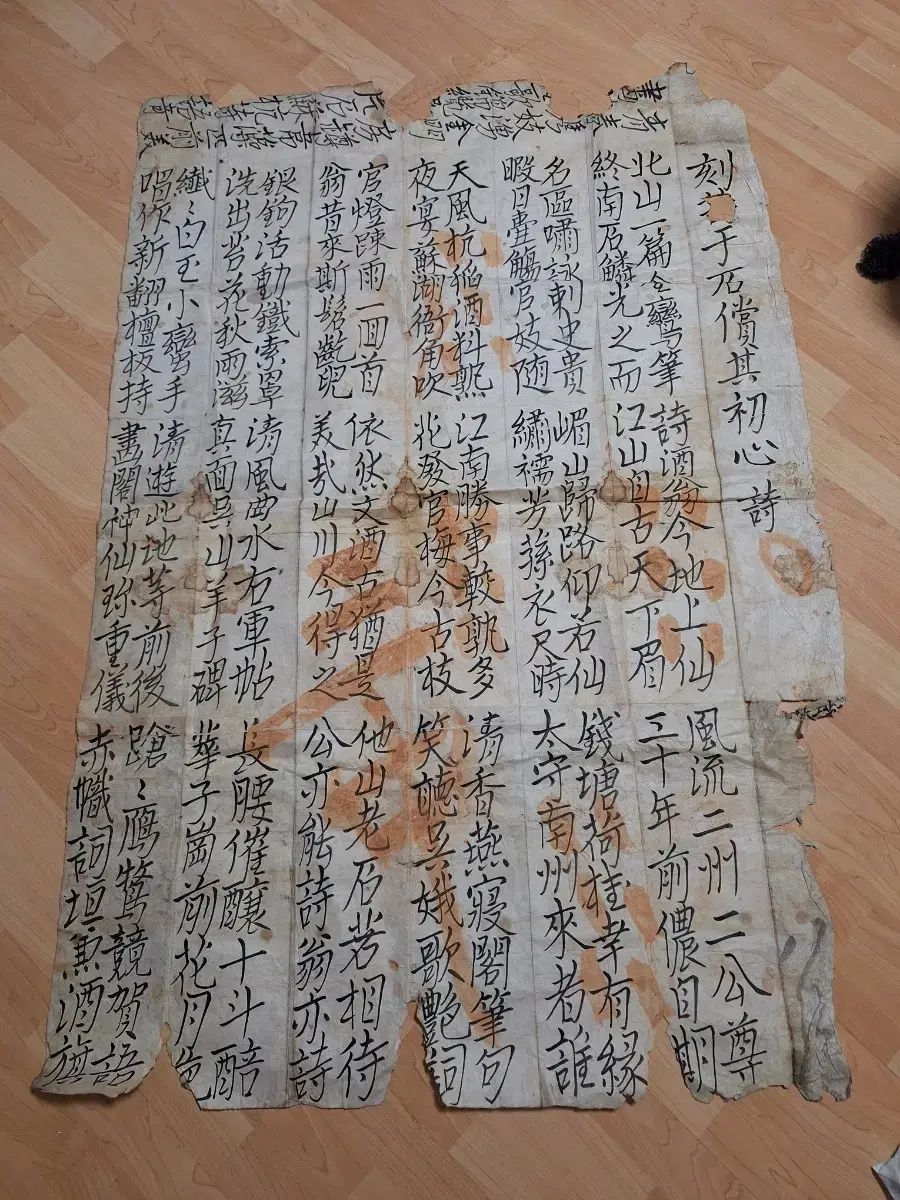 刻于石償其初心 詩
北山一篇全鸞筆 詩酒翁今地上仙 風流二州二公尊
終南石鱗光之而 江山自古天下眉 三十年前儂自期
名區嘯詠刺史貴 嵋山歸路仰若仙 錢塘荷桂幸有緣
暇日壺觴官妓随 繡襦芳蓀衣尺時 太守南州來者誰
天風杭稻酒料熟 江南勝事較孰多 清香燕寢閣筆句
夜宴蘇湖衙角吹 花發官梅今古枝 笑聽吳娥歌艶詞
官燈踈雨一回首 依然文酒古猶是 他山老石若相待
翁昔來斯髫齔兒 美哉山川今得之 公亦能詩翁亦詩
銀鉤活動鐵索罩 清風曲水右軍帖 長腰催釀十斗醅
洗出苔花秋雨滋 真面吳山羊子碑 華子崗前花月色
纖〻白玉小蠻手 清遊此地等前後 蹌〻鴈鶩競賀語
唱作新翻檀板持 畵閣神仙珎重儀 赤幟詞垣焦酒旗